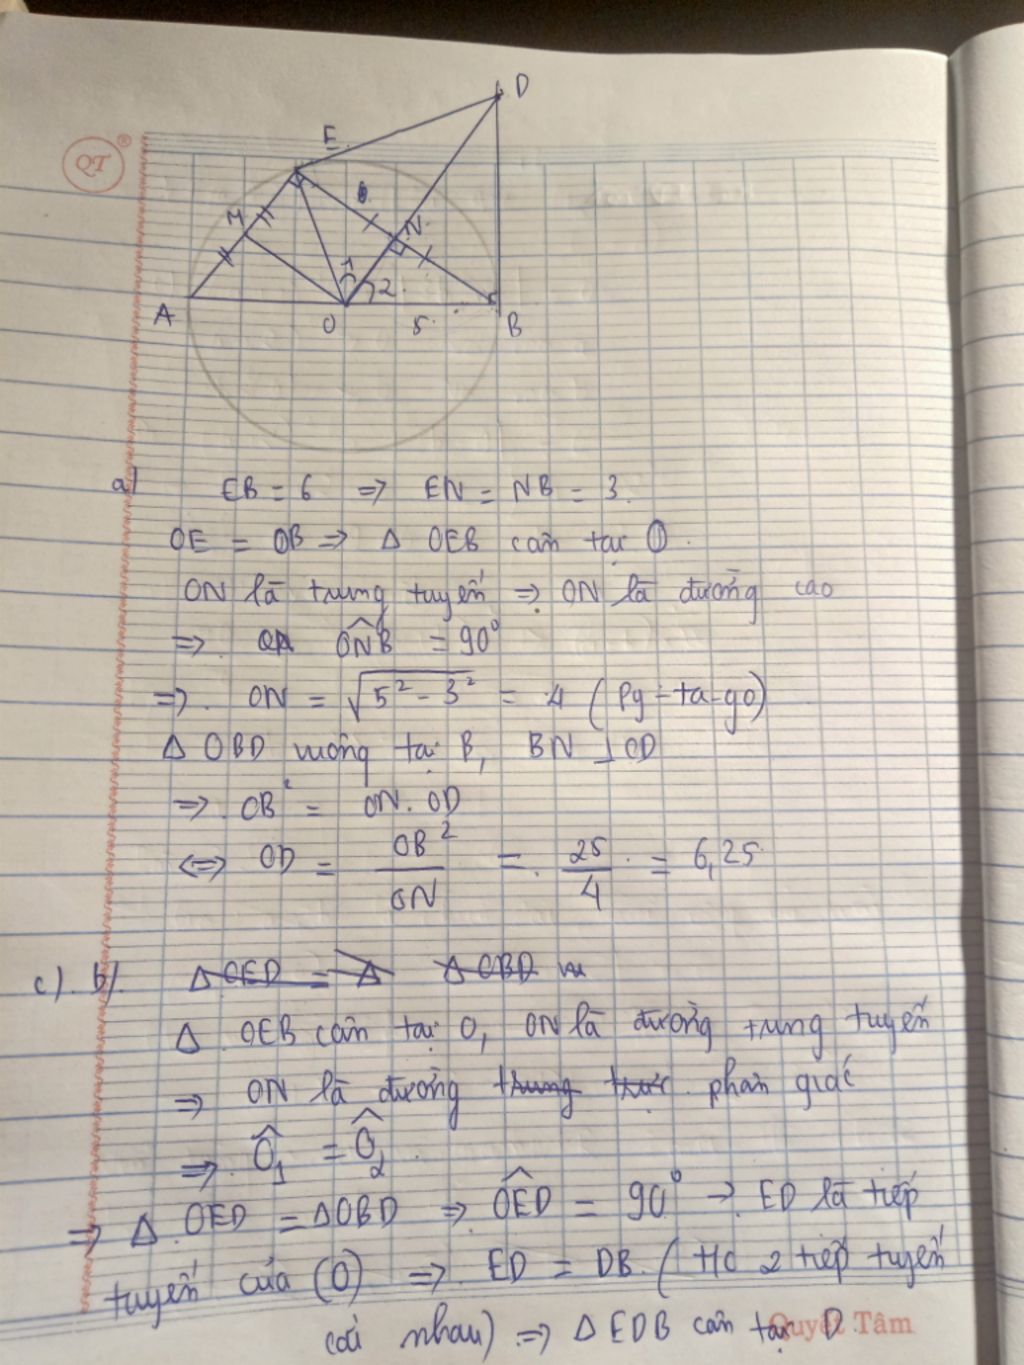 QT ®
D
E
M
N
1
2
A
O
5
B
a) EB = 6 => EN = NB = 3.
OE = OB => Δ OEB cân tại O.
ON là trung tuyến => ON là đường cao
=> ONB̂ = 90°
=> ON = √(5² - 3²) = 4 (Py-ta-go)
Δ OBD vuông tại B, BN ⊥ OD
=> OB² = ON. OD
<=> OD = OB²/ON = 25/4 = 6,25
c). b). Δ OED = Δ Δ OBD
Δ OEB cân tại O, ON là đường trung tuyến
=> ON là đường trung trực phân giác
=> Ô1 = Ô2
=> Δ OED = ΔOBD => OÊD = 90° -> ED là tiếp
tuyến của (O) => ED = DB (t/c 2 tiếp tuyến
cắt nhau) => Δ EDB cân tại D
Quyết Tâm